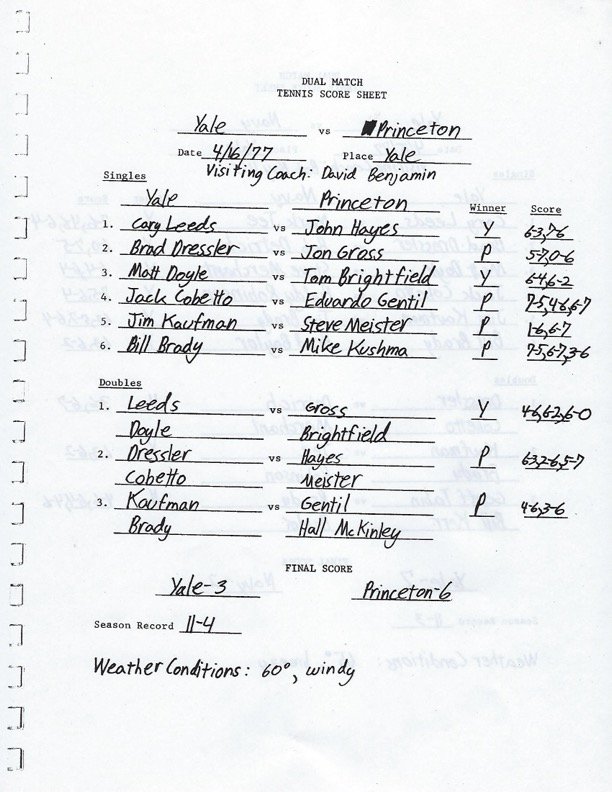 DUAL MATCH
TENNIS SCORE SHEET
Yale vs Princeton
Date 4/16/77 Place Yale
Visiting Coach: David Benjamin
Singles
Yale Princeton Winner Score
1. Cory Leeds vs John Hayes Y 6-3,7-6
2. Brad Dressler vs Jon Gross P 5-7,0-6
3. Matt Doyle vs Tom Brightfield Y 6-4,6-2
4. Jack Cobetto vs Eduardo Gentil P 7-5,4-6,6-7
5. Jim Kaufman vs Steve Meister P 1-6,6-7
6. Bill Brady vs Mike Kushma P 7-5,6-7,3-6
Doubles
1. Leeds vs Gross Y 4-6,6-2,6-0
Doyle Brightfield
2. Dressler vs Hayes P 6-3,2-6,5-7
Cobetto Meister
3. Kaufman vs Gentil P 4-6,3-6
Brady Hall McKinley
FINAL SCORE
Yale-3 Princeton-6
Season Record 11-4
Weather Conditions: 60°, windy